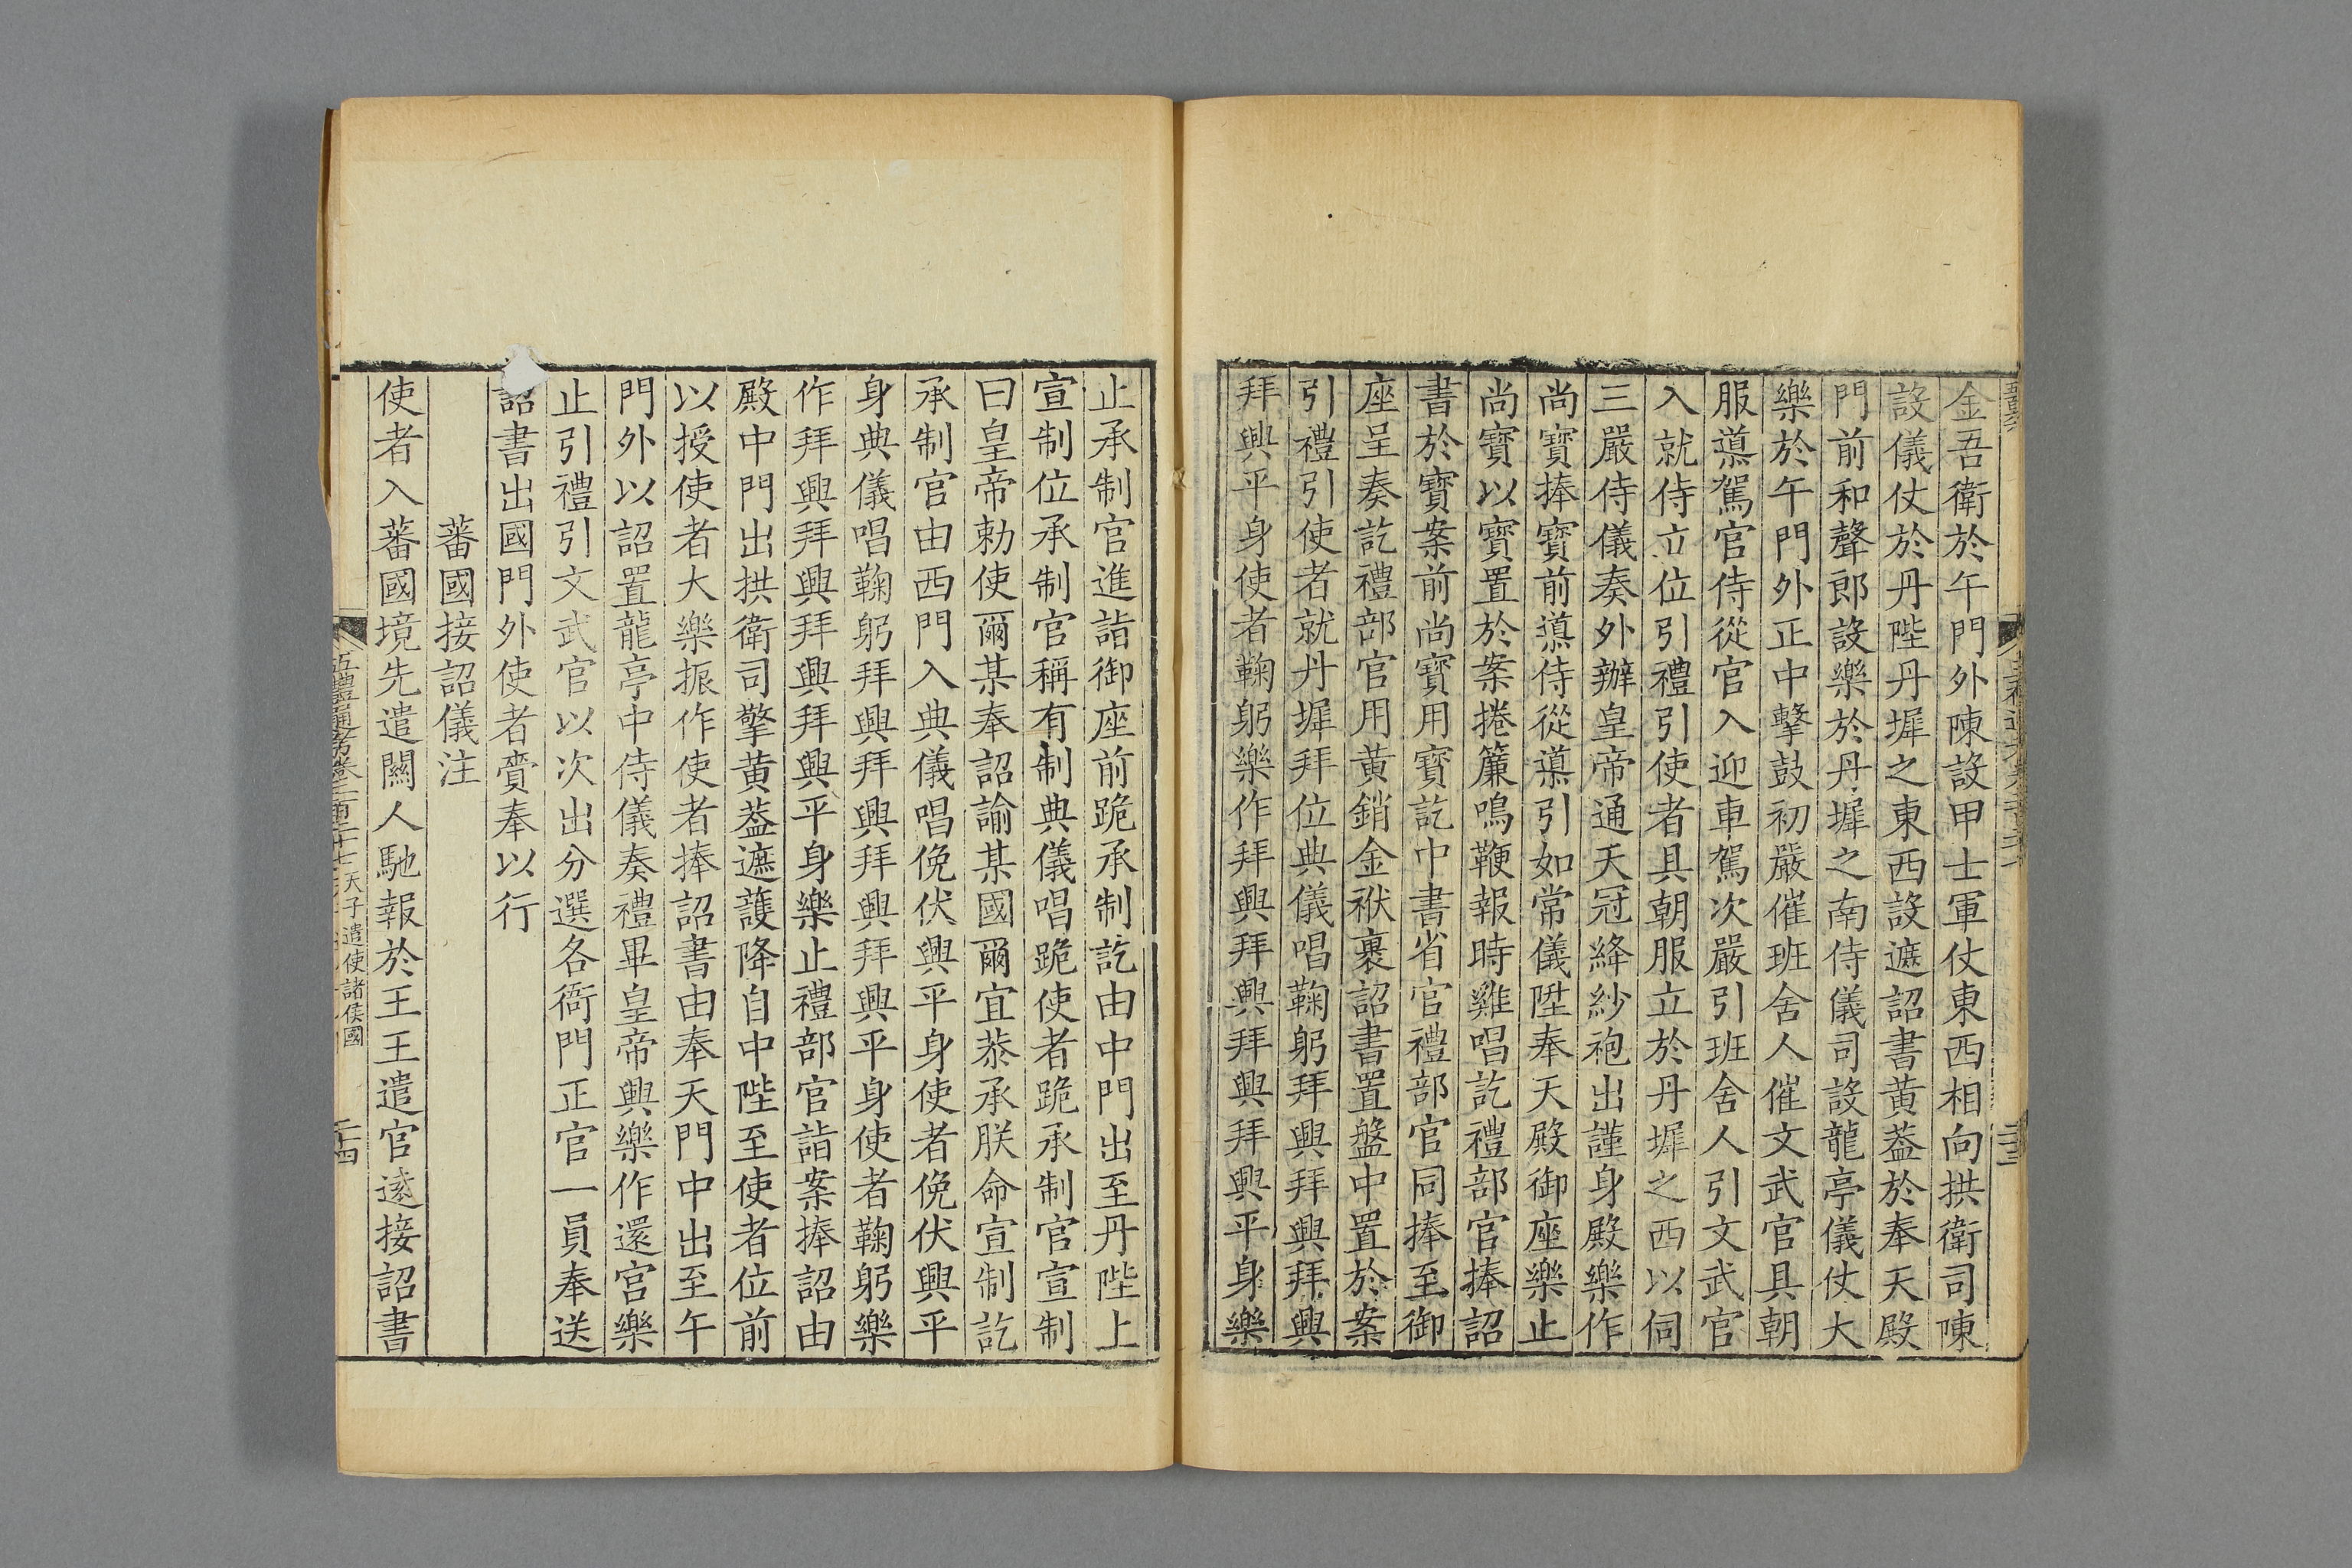 金吾衛於午門外陳設甲士軍仗東西相向拱衛司陳
設儀仗於丹陛丹墀之東西設遮詔書黄葢於奉天殿
門前和聲郎設樂於丹墀之南侍儀司設龍亭儀仗大
樂於午門外正中擊鼓初嚴催班舍人催文武官具朝
服導駕官侍從官入迎車駕次嚴引班舍人引文武官
入就侍立位引禮引使者具朝服立於丹墀之西以伺
三嚴侍儀奏外辦皇帝通天冠絳紗袍出謹身殿樂作
尚寶捧寶前導侍從導引如常儀陞奉天殿御座樂止
尚寶以寶置於案捲簾鳴鞭報時雞唱訖禮部官捧詔
書於寶案前尚寶用寶訖中書省官禮部官同捧至御
座呈奏訖禮部官用黄銷金袱裹詔書置盤中置於案
引禮引使者就丹墀拜位典儀唱鞠躬拜興拜興拜興
拜興平身使者鞠躬樂作拜興拜興拜興拜興平身樂
止承制官進詣御座前跪承制訖由中門出至丹陛上
宣制位承制官稱有制典儀唱跪使者跪承制官宣制
曰皇帝勅使爾某奉詔諭某國爾宜恭承朕命宣制訖
承制官由西門入典儀唱俛伏興平身使者俛伏興平
身典儀唱鞠躬拜興拜興拜興拜興平身使者鞠躬樂
作拜興拜興拜興拜興平身樂止禮部官詣案捧詔由
殿中門出拱衛司擎黄葢遮護降自中陛至使者位前
以授使者大樂振作使者捧詔書由奉天門中出至午
門外以詔置龍亭中侍儀奏禮畢皇帝興樂作還宮樂
止引禮引文武官以次出分選各衙門正官一員奉送
詔書出國門外使者齎奉以行
蕃國接詔儀注
使者入蕃國境先遣關人馳報於王王遣官遠接詔書
五禮通考卷二百二十七 天子遣使諸侯國
二十四